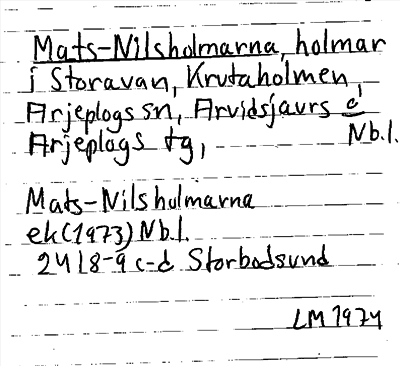 Mats-Nilsholmarna, holmar
i Storavan, Krutaholmen,
Arjeplogs sn, Arvidsjaurs o
Arjeplogs tg, Nb.l.
Mats-Nilsholmarna
ek(1973) Nb.l.
24I 8-9 c-d Storbodsund
LM 1974